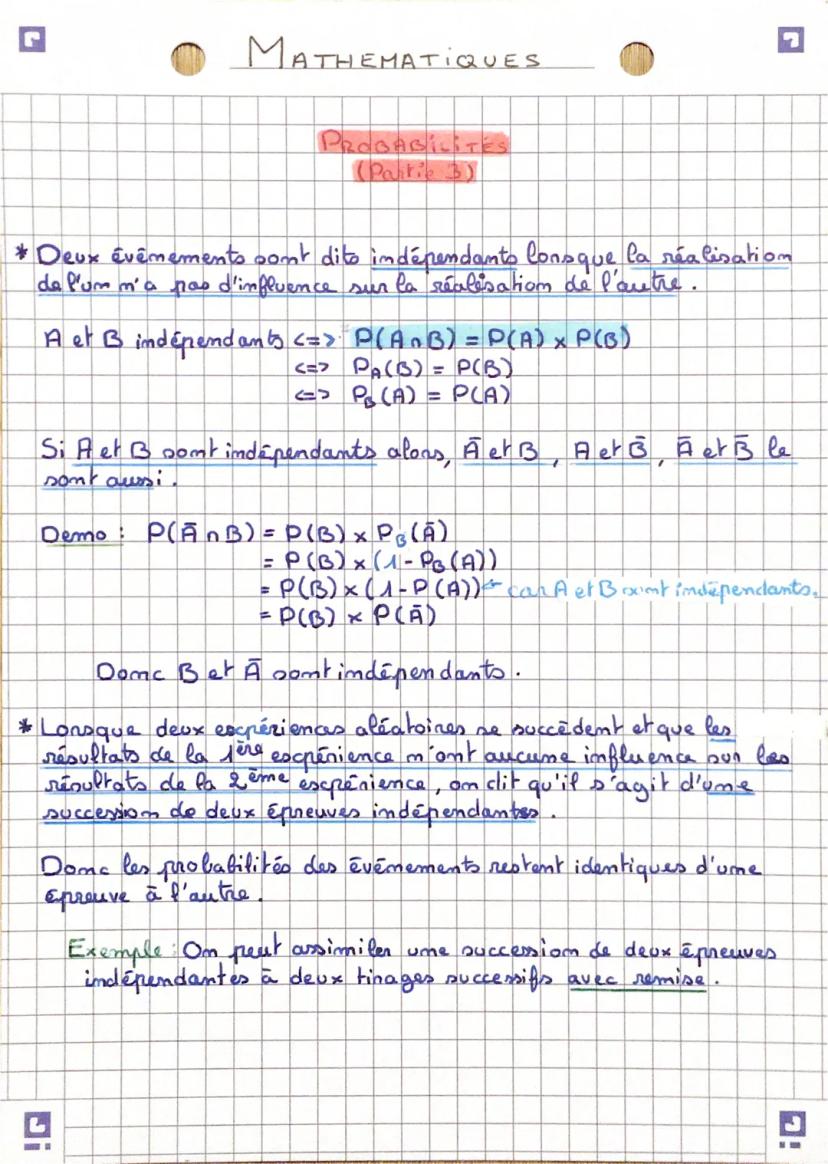 MATHEMATIQUES
PROBABILITÉS
(Partie 3)
* Deux évènements sont dits indépendants lorsque la réalisation
de l'un n'a pas d'influence sur la réalisation de l'autre.
A et B indépendants <=> P(A∩B) = P(A) × P(B)
<=> P_A(B) = P(B)
<=> P_B(A) = P(A)
Si A et B sont indépendants alors, Ā et B, A et B̄, Ā et B̄ le
sont aussi.
Demo : P(Ā∩B) = P(B) × P_B(Ā)
= P(B) × (1 - P_B(A))
= P(B) × (1 - P(A)) ← car A et B sont indépendants.
= P(B) × P(Ā)
Donc B et Ā sont indépendants.
* Lorsque deux expériences aléatoires se succèdent et que les
résultats de la 1ère expérience n'ont aucune influence sur les
résultats de la 2ème expérience, on dit qu'il s'agit d'une
succession de deux épreuves indépendantes.
Donc les probabilités des évènements restent identiques d'une
épreuve à l'autre.
Exemple : On peut assimiler une succession de deux épreuves
indépendantes à deux tirages successifs avec remise.